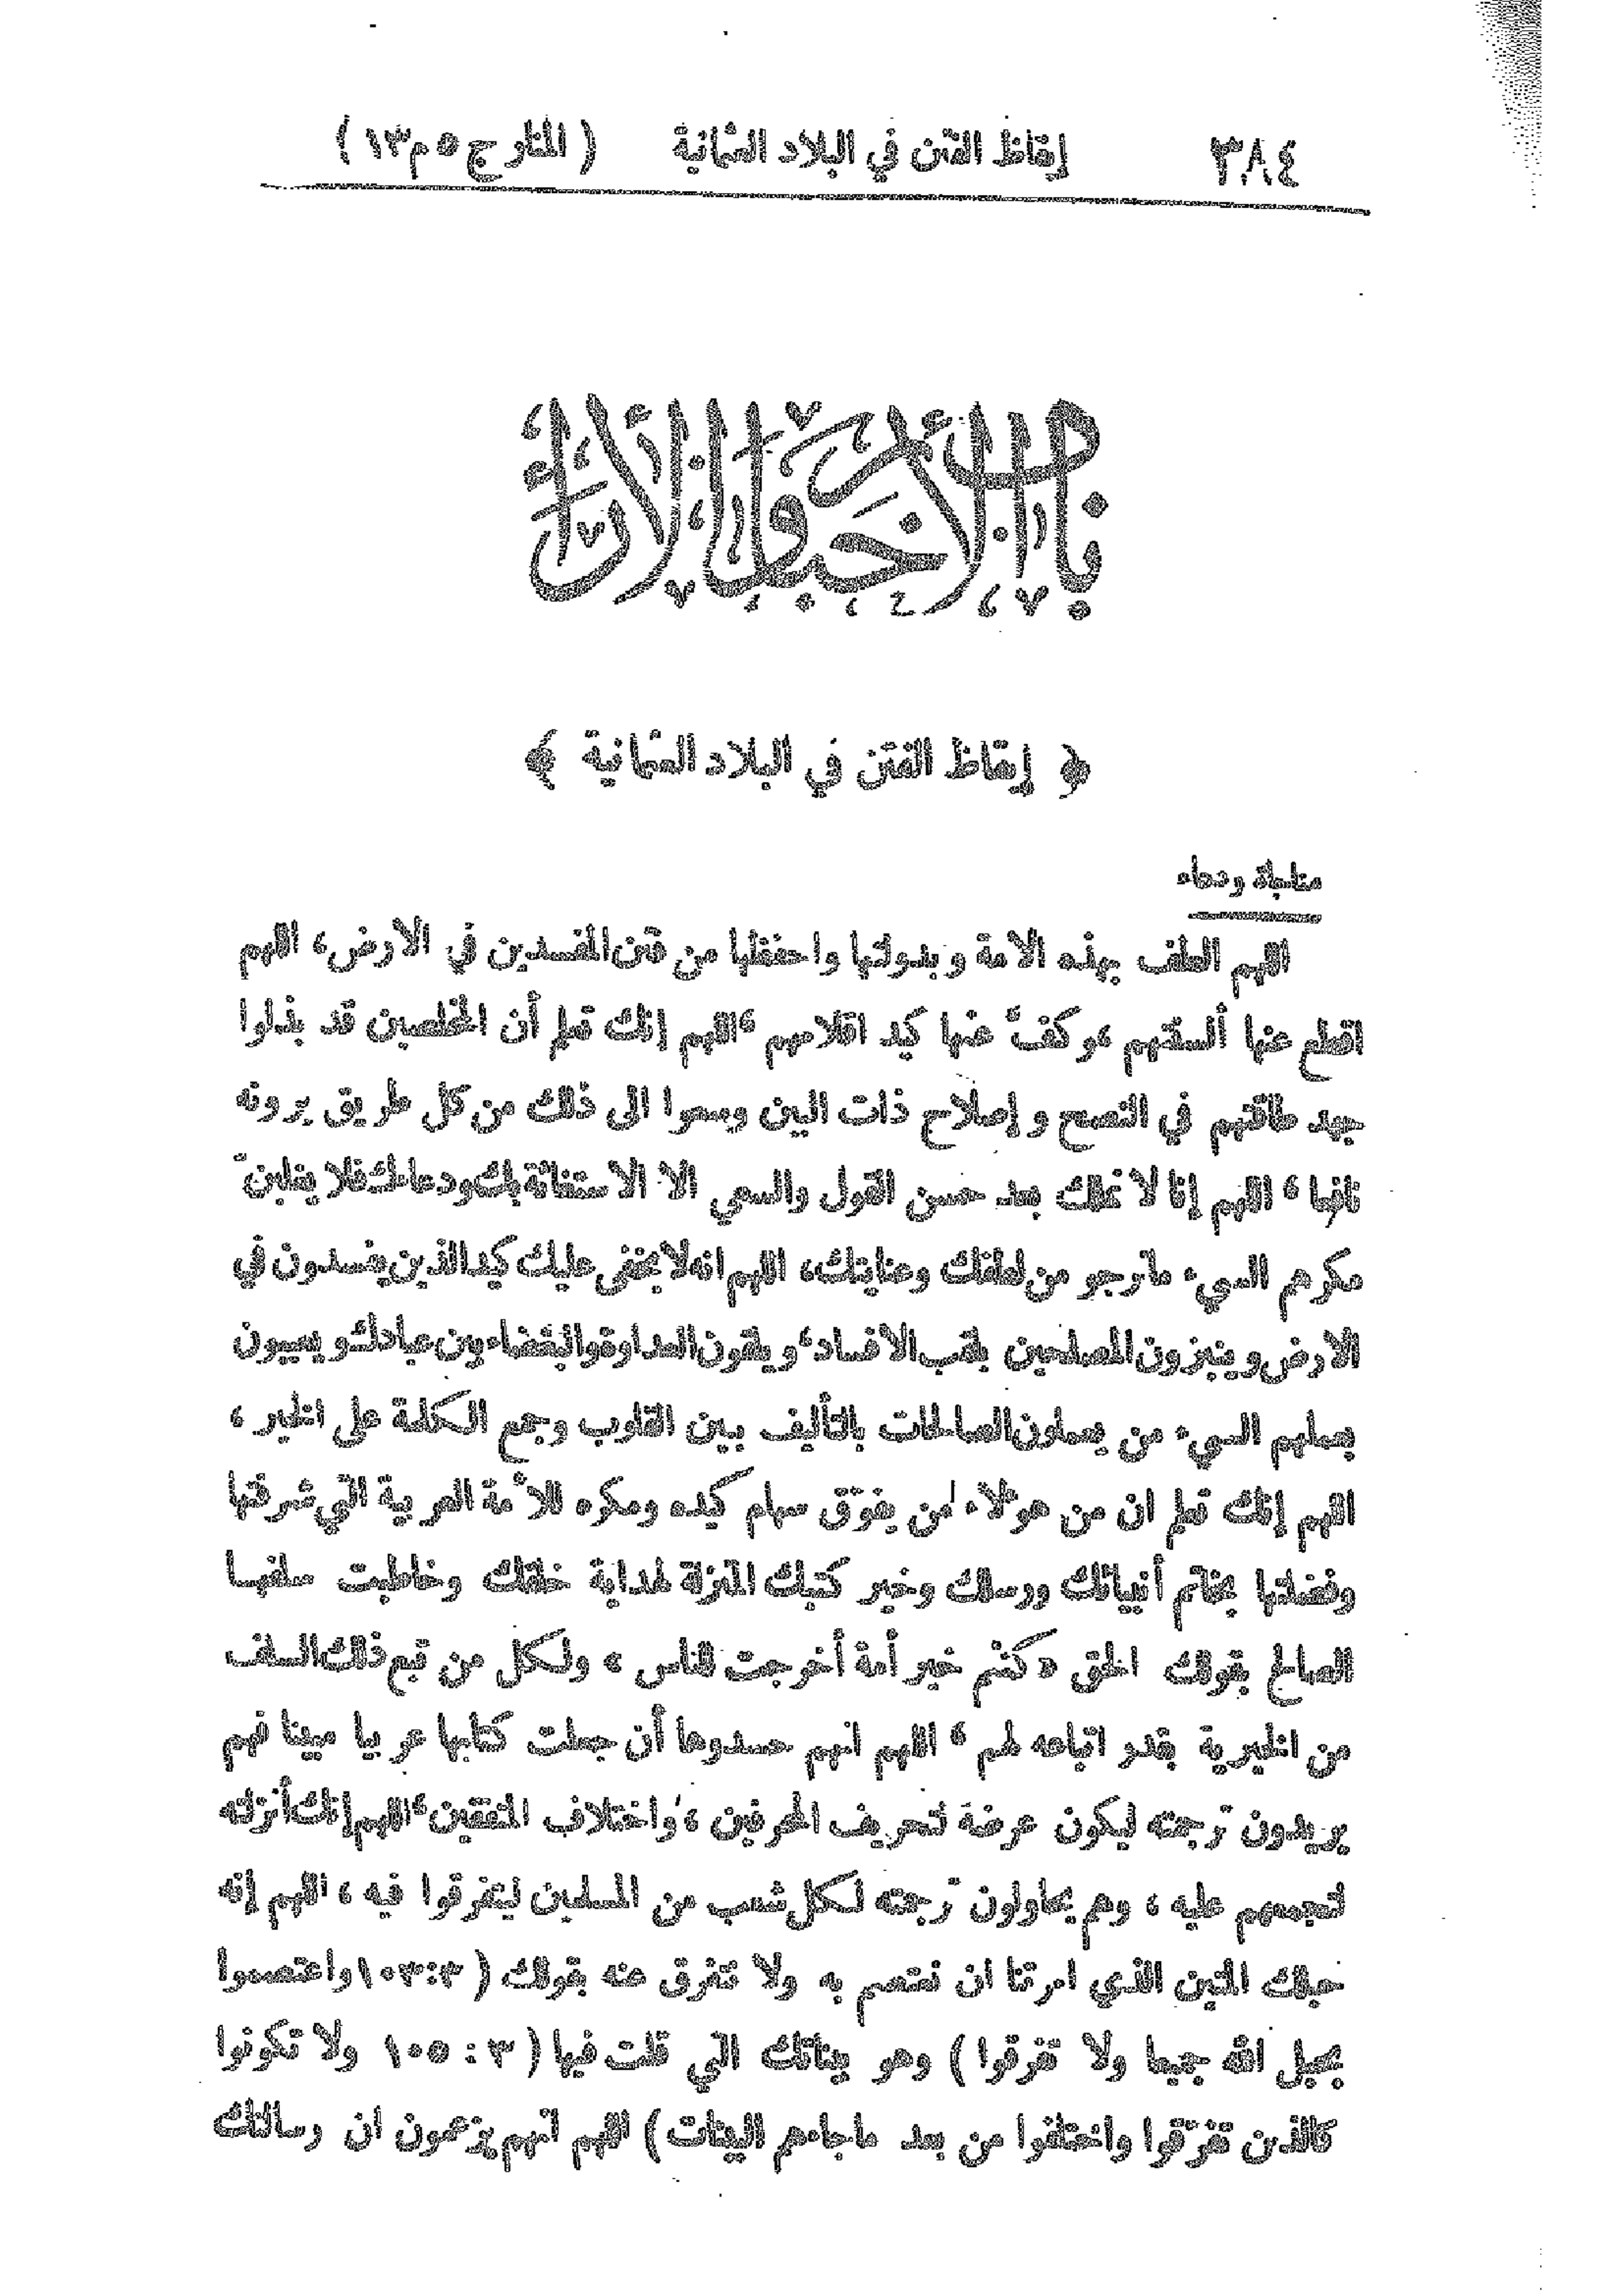 ٣٨٤ إيقاظ الفتن في البلاد العثمانية ( المنار ج ٥ م ١٣ )
باب الأخبار والآراء
﴿ إيقاظ الفتن في البلاد العثمانية ﴾
مناجاة ودعاء
اللهم الطف بهذه الامة وبدولتها واحفظها من فتن المفسدين في الارض، اللهم
اقطع عنها ألسنتهم، وكفّ عنها كيد اقلامهم، اللهم إنك تعلم أن المخلصين قد بذلوا
جهد طاقتهم في النصح وإصلاح ذات البين وسعوا الى ذلك من كل طريق يرونه
نافعا، اللهم إنا لا نملك بعد حسن القول والسعي الا الاستغاثة بك ودعاءك فلا يغلبنّ
مكرهم السيء ما نرجو من لطفك وعنايتك، اللهم انه لا يخفى عليك كيد الذين يفسدون في
الارض وينبزون المصلحين بلقب الافساد، ويلقون العداوة والبغضاء بين عبادك ويعيبون
بعملهم السيء من يعملون الصالحات بالتأليف بين القلوب وجمع الكلمة على الخير،
اللهم إنك تعلم ان من هؤلاء من يفوّق سهام كيده ومكره للأمة العربية التي شرفتها
وفضلتها بخاتم أنبيائك ورسلك وخير كتبك المنزلة لهداية خلقك وخاطبت سلفها
الصالح بقولك الحق « كنتم خير أمة أخرجت للناس » ولكل من تبع ذلك السلف
من الخيرية بقدر اتباعه لهم، اللهم انهم حسدوها أن جعلت كتابها عربيا مبينا فهم
يريدون ترجمته ليكون عرضة لتحريف المحرفين، واختلاف المتفقين، اللهم إنك أنزلته
لتجمعهم عليه، وهم يحاولون ترجمته لكل شعب من المسلمين ليتفرقوا فيه، اللهم إنه
حبلك المتين الذي امرتنا ان نعتصم به ولا نتفرق عنه بقولك ( ٣:١٠٣ واعتصموا
بحبل الله جميعا ولا تفرقوا ) وهو بيناتك التي قلت فيها ( ٣ : ١٠٥ ولا تكونوا
كالذين تفرّقوا واختلفوا من بعد ماجاءهم البينات ) اللهم انهم يزعمون ان رسالتك